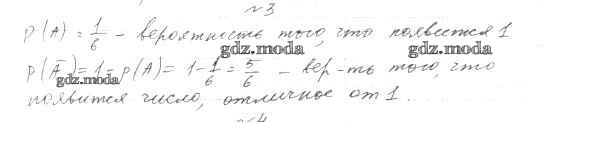 №3
P(A) = 1/6 - вероятность того, что появится 1
gdz.moda gdz.moda
P(Ā) = 1 - P(A) = 1 - 1/6 = 5/6 - вер-ть того, что
gdz.moda
появится число, отличное от 1.